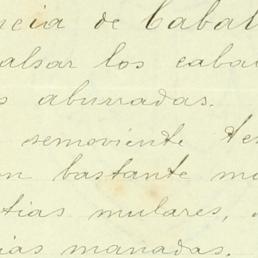 ncia de Caball
alsar los cabal
s aburradas.
semoviente tes
on bastante mo
tias mulares,
ias manadas.